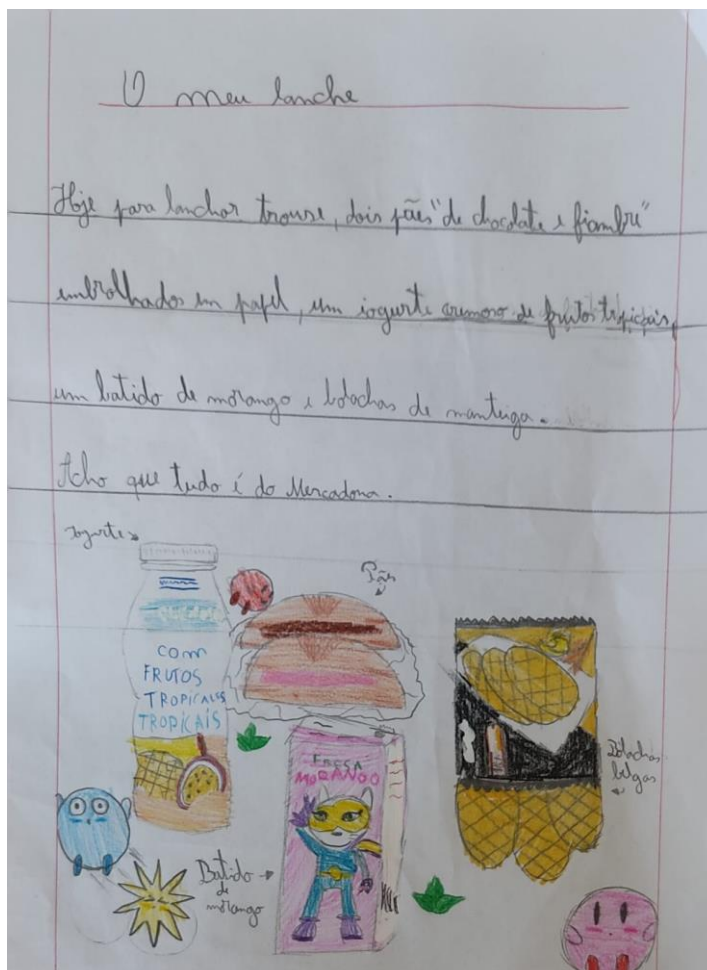 O meu lanche
Hoje para lanchar trouse, dois pães "de chocolate e fiambre"
embrolhados em papel, um iogurte cremoso de frutos tropicais,
um batido de morango e bolachas de manteiga.
Acho que tudo é do Mercadona.
Iogurte
Pães
COM
FRUTOS
TROPICALES
TROPICAIS
FRESA
MORANGO
Bolachas
belgas
Batido
de
morango